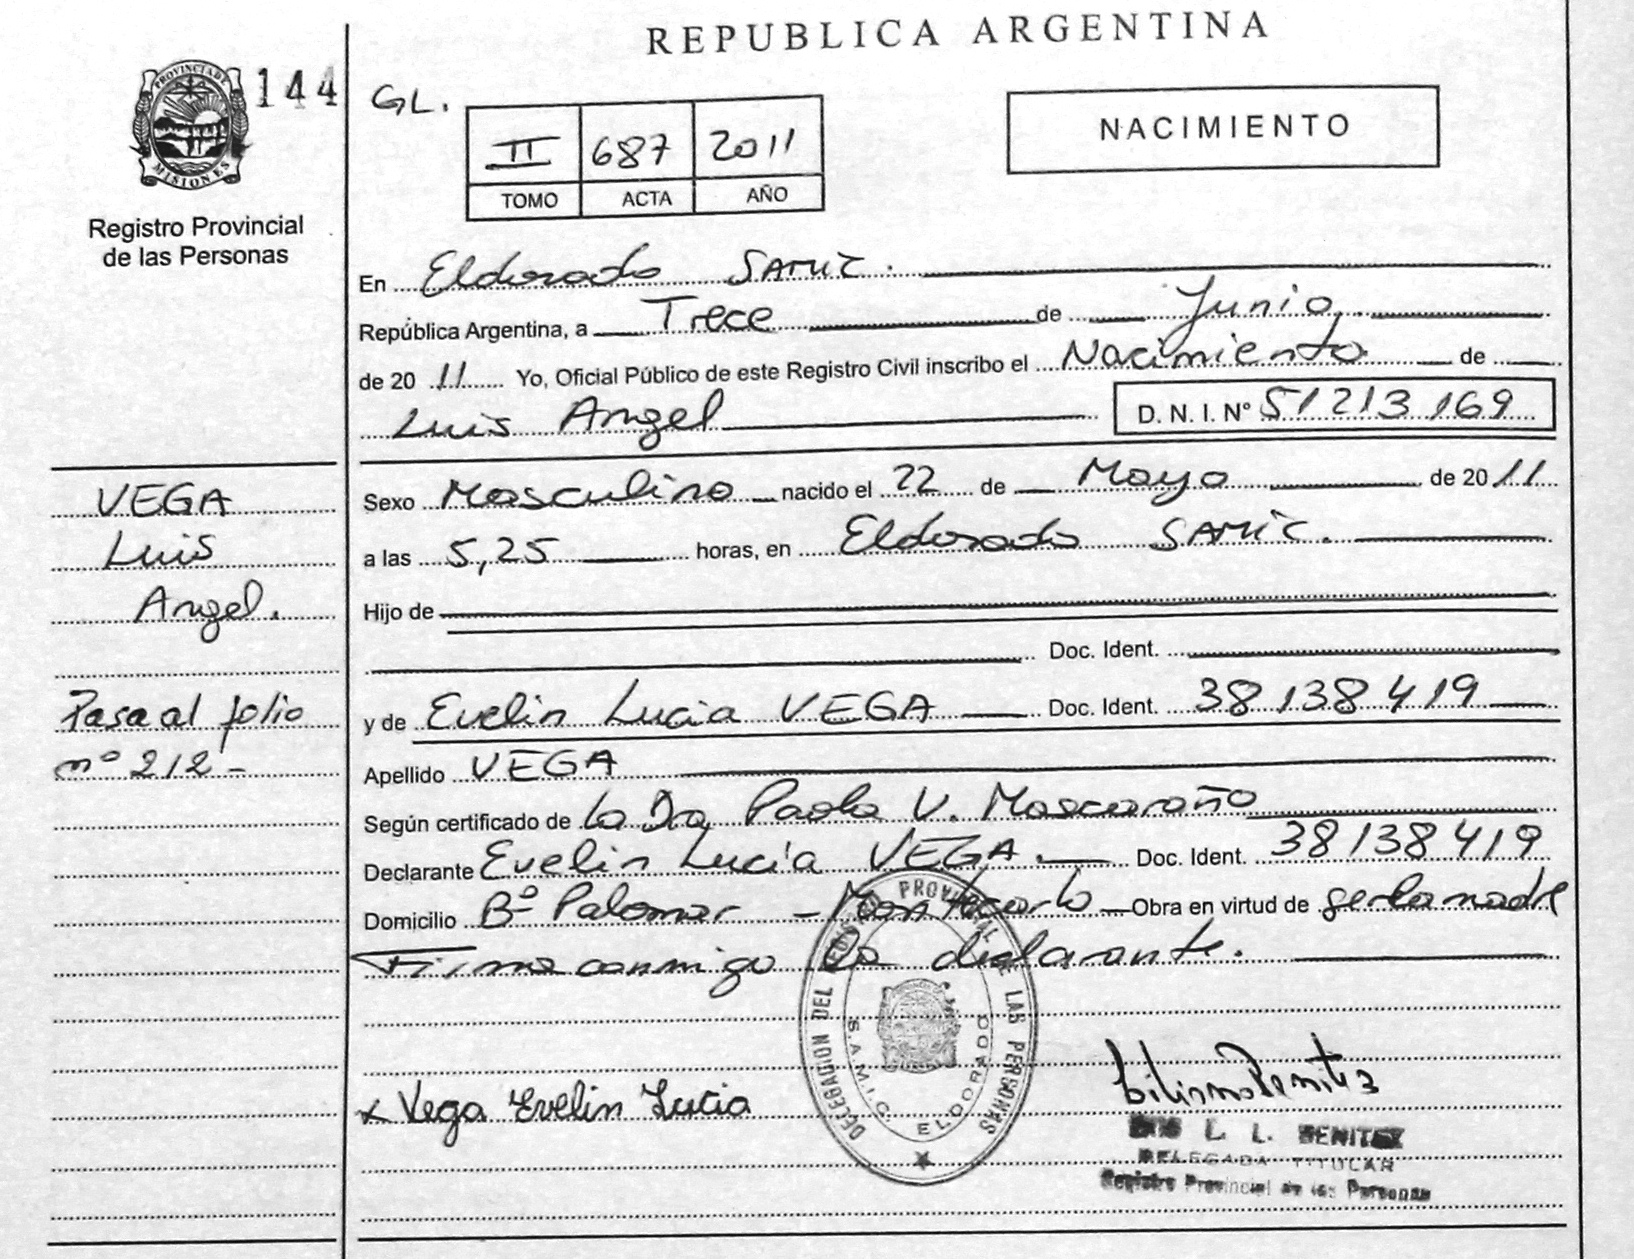 REPUBLICA ARGENTINA
PROVINCIA DE
MISIONES
144
Registro Provincial
de las Personas
GL.
II 687 2011
TOMO ACTA AÑO
NACIMIENTO
En Eldorado SAMIC.
República Argentina, a Trece de Junio
de 2011 Yo, Oficial Público de este Registro Civil inscribo el Nacimiento de
Luis Angel D. N. I. Nº 51213169
VEGA
Luis
Angel.
Pasa al folio
nº 212-
Sexo Masculino nacido el 22 de Mayo de 2011
a las 5,25 horas, en Eldorado SAMIC.
Hijo de
Doc. Ident.
y de Evelin Lucia VEGA Doc. Ident. 38138419
Apellido VEGA
Según certificado de la Dra Paola V. Mascaraño
Declarante Evelin Lucia VEGA. Doc. Ident. 38138419
Domicilio Bº Palomar - Montecarlo Obra en virtud de ser la madre
Firma conmigo la declarante.
DELEGACION DEL REGISTRO PROVINCIAL DE LAS PERSONAS
S.A.M.I.C. ELDORADO
x Vega Evelin Lucia
L. L. BENITEZ
DELEGADA TITULAR
Registro Provincial de las Personas